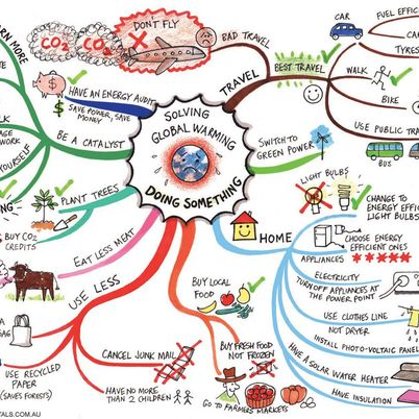 SOLVING
GLOBAL WARMING
DOING SOMETHING
DON'T FLY
CO2
CO2
BAD TRAVEL
TRAVEL
BEST TRAVEL
CAR
FUEL EFFICI
CAR
TYRES
WALK
BIKE
USE PUBLIC
BUS
SWITCH TO
GREEN POWER
HOME
LIGHT BULBS
CHANGE TO
ENERGY EFFICI
LIGHT BULBS
CHOOSE ENERGY
EFFICIENT ONES
APPLIANCES
ELECTRICITY
TURN OFF APPLIANCES AT
THE POWER POINT
USE CLOTHES LINE
NOT DRYER
INSTALL PHOTO-VOLTAIC PANEL
HAVE A SOLAR WATER HEATER
HAVE INSULATION
BUY LOCAL
FOOD
BUY FRESH FOOD
NOT FROZEN
GO TO FARMERS MARKETS
USE LESS
CANCEL JUNK MAIL
HAVE NO MORE
THAN 2 CHILDREN
BAG
USE RECYCLED
PAPER
(SAVES FORESTS)
EAT LESS MEAT
PLANT TREES
BUY CO2
CREDITS
BE A CATALYST
HAVE AN ENERGY AUDIT
SAVE POWER, SAVE
MONEY
RN MORE
LK
AGE
WORK
YOURSELF
NG
TALS.COM.AU